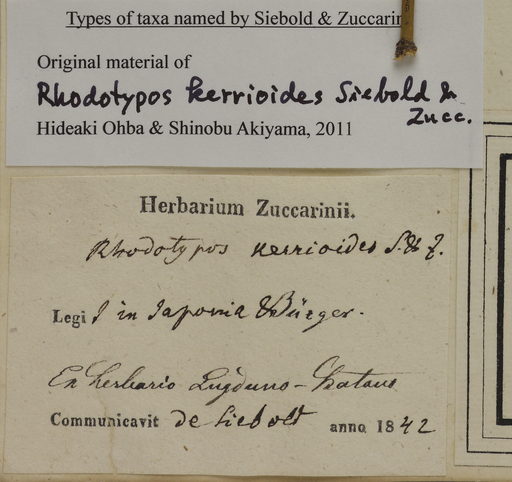 Types of taxa named by Siebold & Zuccarin
Original material of
Rhodotypos kerrioides Siebold &
Zucc.
Hideaki Ohba & Shinobu Akiyama, 2011
Herbarium Zuccarinii.
Rhodotypos kerrioides S. & Z.
Legi in Japonia Bürger.
Ex herbario Lugduno-Batavo
Communicavit de Siebold anno 1842